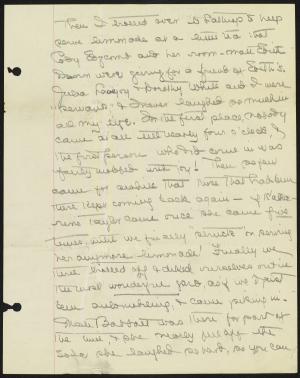 Then I breezed over to Phillips to help
serve lemonade at a little tea that
Peggy Boycomb and her room-mate Edith
were giving for a friend of Edith's.
and Dorothy White and I were
"servants" & I never laughed so much in
all my life. In the first place, nobody
came at all till nearly four o'clock &
the first person who did come in was
fairly mobbed with joy! Then a few
came for and those that had been
there kept coming back again — & Katha-
rine Taylor came once she came five
times, until we finally "struck" on serving
her anymore lemonade! Finally we
three breezed off & decked ourselves out in
the most wonderful as if we'd just
been automobiling, & came in.
Babbott was there for part of
the time, & she nearly fell off the
sofa she laughed so hard, as you can